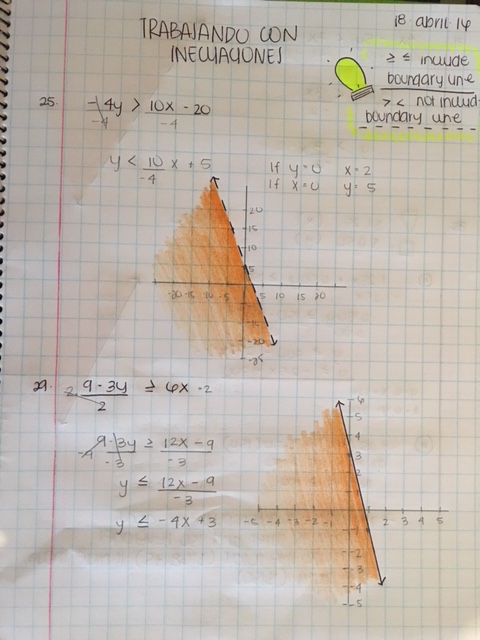 18 · april · 14
TRABAJANDO CON
INECUACIONES
≥ ≤ include
boundary line
> < not includ
boundary line
25. -4y > 10x - 20
-4 -4
y < 10 x + 5
-4
If y = 0 x = 2
If x = 0 y = 5
20
15
10
5
-20 -15 -10 -5 5 10 15 20
-10
-20
-25
29. 2 9 - 3y ≥ 6x · 2
2
-9 9 - 3y ≥ 12x - 9
-3 -3
y ≤ 12x - 9
-3
y ≤ -4x + 3
6
5
4
3
2
-5 -4 -3 -2 -1 1 2 3 4 5
-1
-2
-3
-4
-5